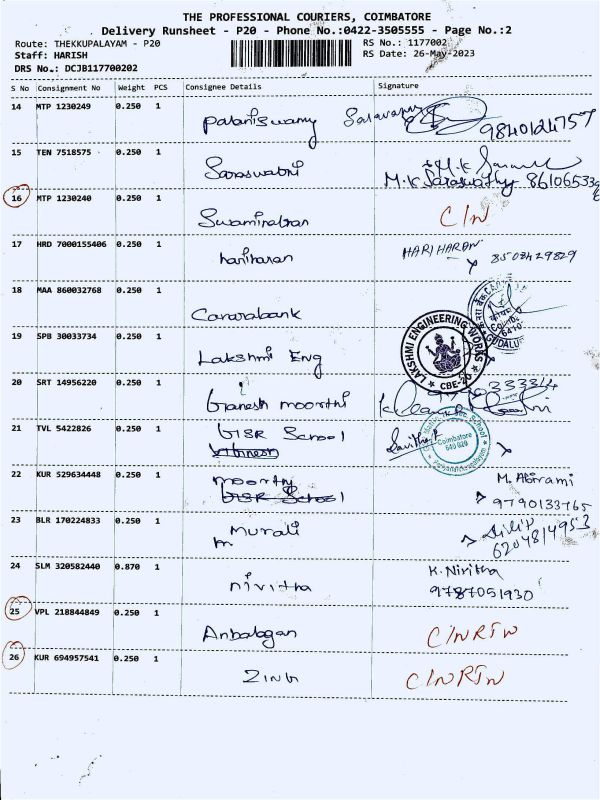 THE PROFESSIONAL COURIERS, COIMBATORE
Delivery Runsheet - P20 - Phone No.:0422-3505555 - Page No.:2
Route: THEKKUPALAYAM - P20 RS No.: 1177002
Staff: HARISH RS Date: 26-May-2023
DRS No.: DCJB117700202
S No Consignment No Weight PCS Consignee Details Signature
14 MTP 1230249 0.250 1 Palaniswamy
9840124757
15 TEN 7518575 0.250 1 Saraswathi
M.K Saraswathy
16 MTP 1230240 0.250 1 Swaminathan C/N
17 HRD 7000155406 0.250 1 hariharan HARIHARAN
8508429829
18 MAA 860032768 0.250 1 Canarabank
19 SPB 30033734 0.250 1 Lakshmi Eng
LAKSHMI ENGINEERING WORKS
CBE-20
20 SRT 14956220 0.250 1 Ganesh moorthi
21 TVL 5422826 0.250 1 GSR School
Coimbatore
22 KUR 529634448 0.250 1 moorthy M. Abirami
GSR School 9790133765
23 BLR 170224833 0.250 1 Murali
6204814953
24 SLM 320582440 0.870 1 nivitha K. Nivitha
9787051930
25 VPL 218844849 0.250 1 Anbalagan C/NRTN
26 KUR 694957541 0.250 1 C/NRTN